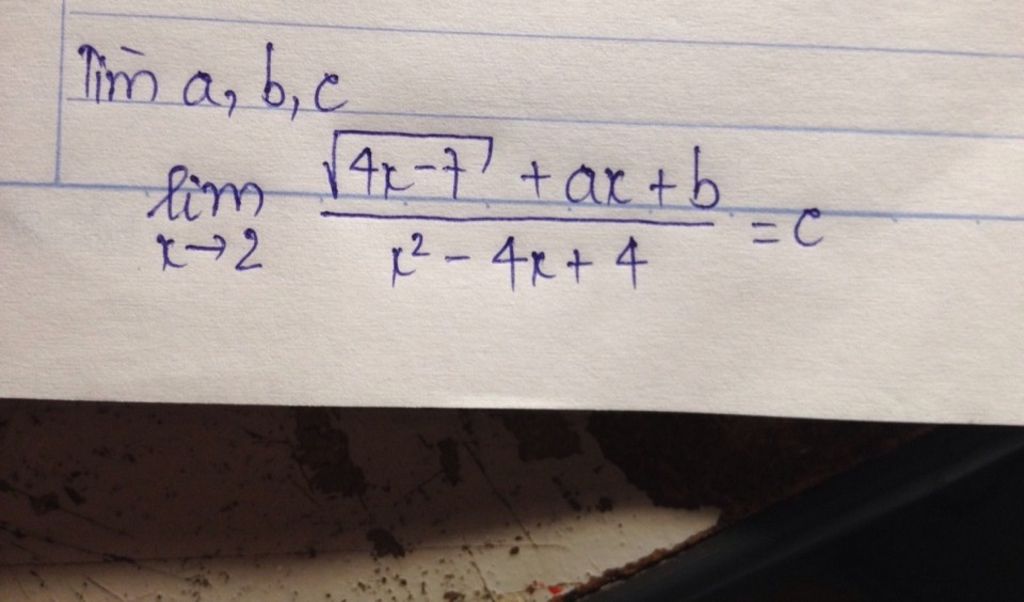 Tìm a, b, c
lim x→2 (√(4x-7) + ax + b) / (x² - 4x + 4) = c